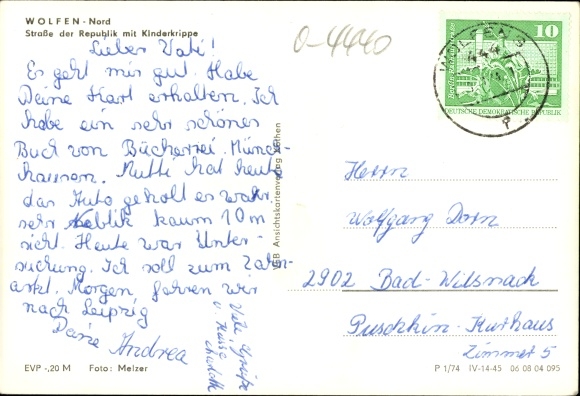 WOLFEN - Nord
Straße der Republik mit Kinderkrippe
O-4440
Lieber Vati!
Es geht mir gut. Habe
Deine Kart erhalten. Ich
habe ein sehr schönes
Buch von Bücherrei. Münch-
hausen. Mutti hat heute
das Auto geholt es wahr
sehr neblik kaum 10 m
sicht. Heute war Unter-
suchung. Ich soll zum Zahn-
arkt. Morgen fahren wir
nach Leipzig
Deine Andrea
Viele Grüße
u. Küsse
EVP -,20 M Foto: Melzer
VEB Ansichtskartenverlag Köthen
WOLFEN
10
DEUTSCHE DEMOKRATISCHE REPUBLIK
Herrn
Wolfgang Dorn
2902 Bad-Wilsnack
Puschkin-Kurhaus
Zimmer 5
P 1/74 IV-14-45 06 08 04 095